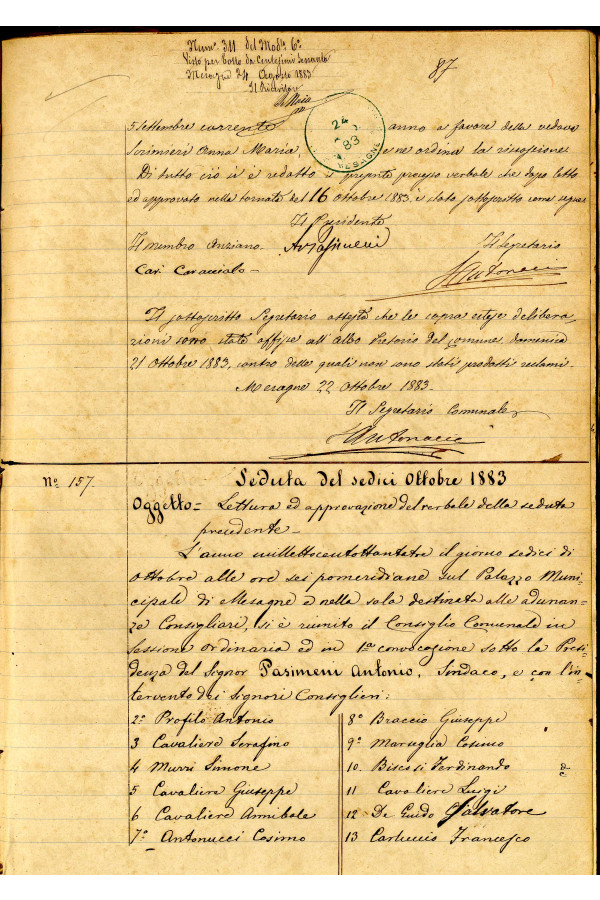 Num. 311 del Mod. 6°
Visto per bollo da Centesimi sessanta
Mesagne 24 Agosto 1883
Il Ricevitore
87
24
83
MESAGNE
5 Settembre corrente anno a favore della vedova
Scrimieri Anna Maria, e ne ordina la riscossione
Di tutto ciò si è redatto il presente processo verbale che dopo letto
ed approvato nella tornata del 16 Ottobre 1883 è stato sottoscritto come segue
Il Presidente
Il membro Anziano A Pasimeni Il Segretario
Cav. Caracciolo Antonucci
Il sottoscritto Segretario attesta che le sopra estese delibera
zioni sono state affisse all'Albo Pretorio del comune domenica
21 Ottobre 1883, contro delle quali non sono stati prodotti reclami.
Mesagne 22 Ottobre 1883.
Il Segretario Comunale
Antonucci
N° 157.
Seduta del sedici Ottobre 1883
Oggetto = Lettura ed approvazione del verbale della seduta
precedente
L'anno milleottocentottantatre il giorno sedici di
Ottobre alle ore sei pomeridiane sul Palazzo Muni
cipale di Mesagne e nella sala destinata alle adunan
ze Consigliari, si è riunito il Consiglio Comunale in
sessione ordinaria ed in 1a convocazione sotto la Presi
denza del Signor Pasimeni Antonio, Sindaco, e con l'in
tervento dei Signori Consiglieri:
2° Profilo Antonio
3 Cavaliere Serafino
4 Murri Simone
5 Cavaliere Giuseppe
6 Cavaliere Annibale
7° Antonucci Cosimo
8° Braccio Giuseppe
9° Marseglia Cosimo
10. Biscosi Ferdinando
11 Cavaliere Luigi
12 De Guido Salvatore
13 Carluccio Francesco